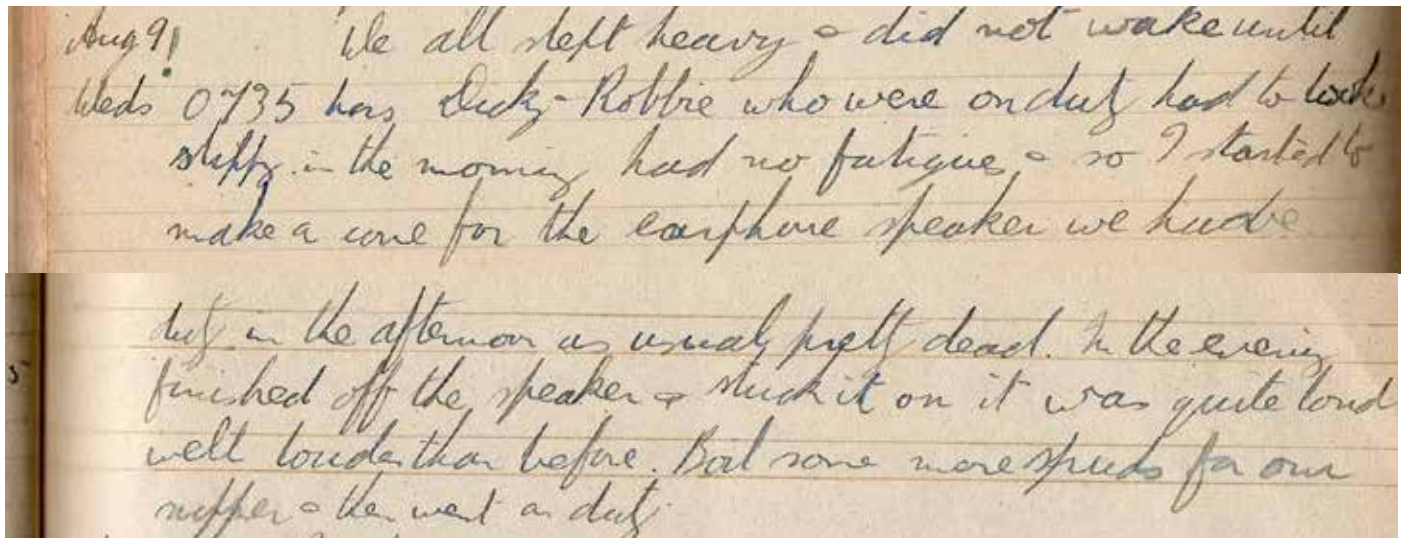 Aug 9! We all slept heavy & did not wake until
Weds 0735 hrs Dicky & Robbie who were on duty had to look
slippy in the morning had no fatigue & so I started to
make a cone for the earphone speaker we had
duty in the afternoon as usual, pretty dead. In the evening
finished off the speaker & stuck it on it was quite loud
well louder than before. Boil some more spuds for our
supper & then went on duty.